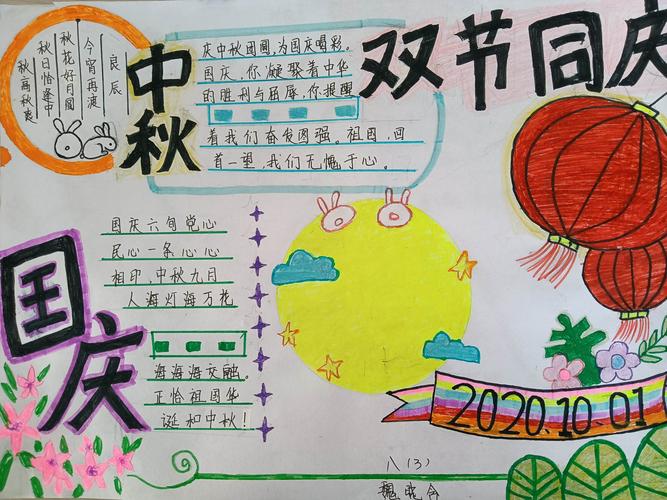 双节同庆
中秋
良辰
今宵再演
秋花好月圆
秋日恰逢中
秋高秋爽
庆中秋团圆,为国庆喝彩。
国庆,你凝聚着中华
的胜利与屈辱,你提醒
着我们奋发图强。祖国,回
首一望,我们无愧于心。
国庆
国庆六旬党心
民心一条心心
相印,中秋九月
人海灯海万花
海海海交融。
正恰祖国华
诞和中秋!
2020.10.01
八(3)